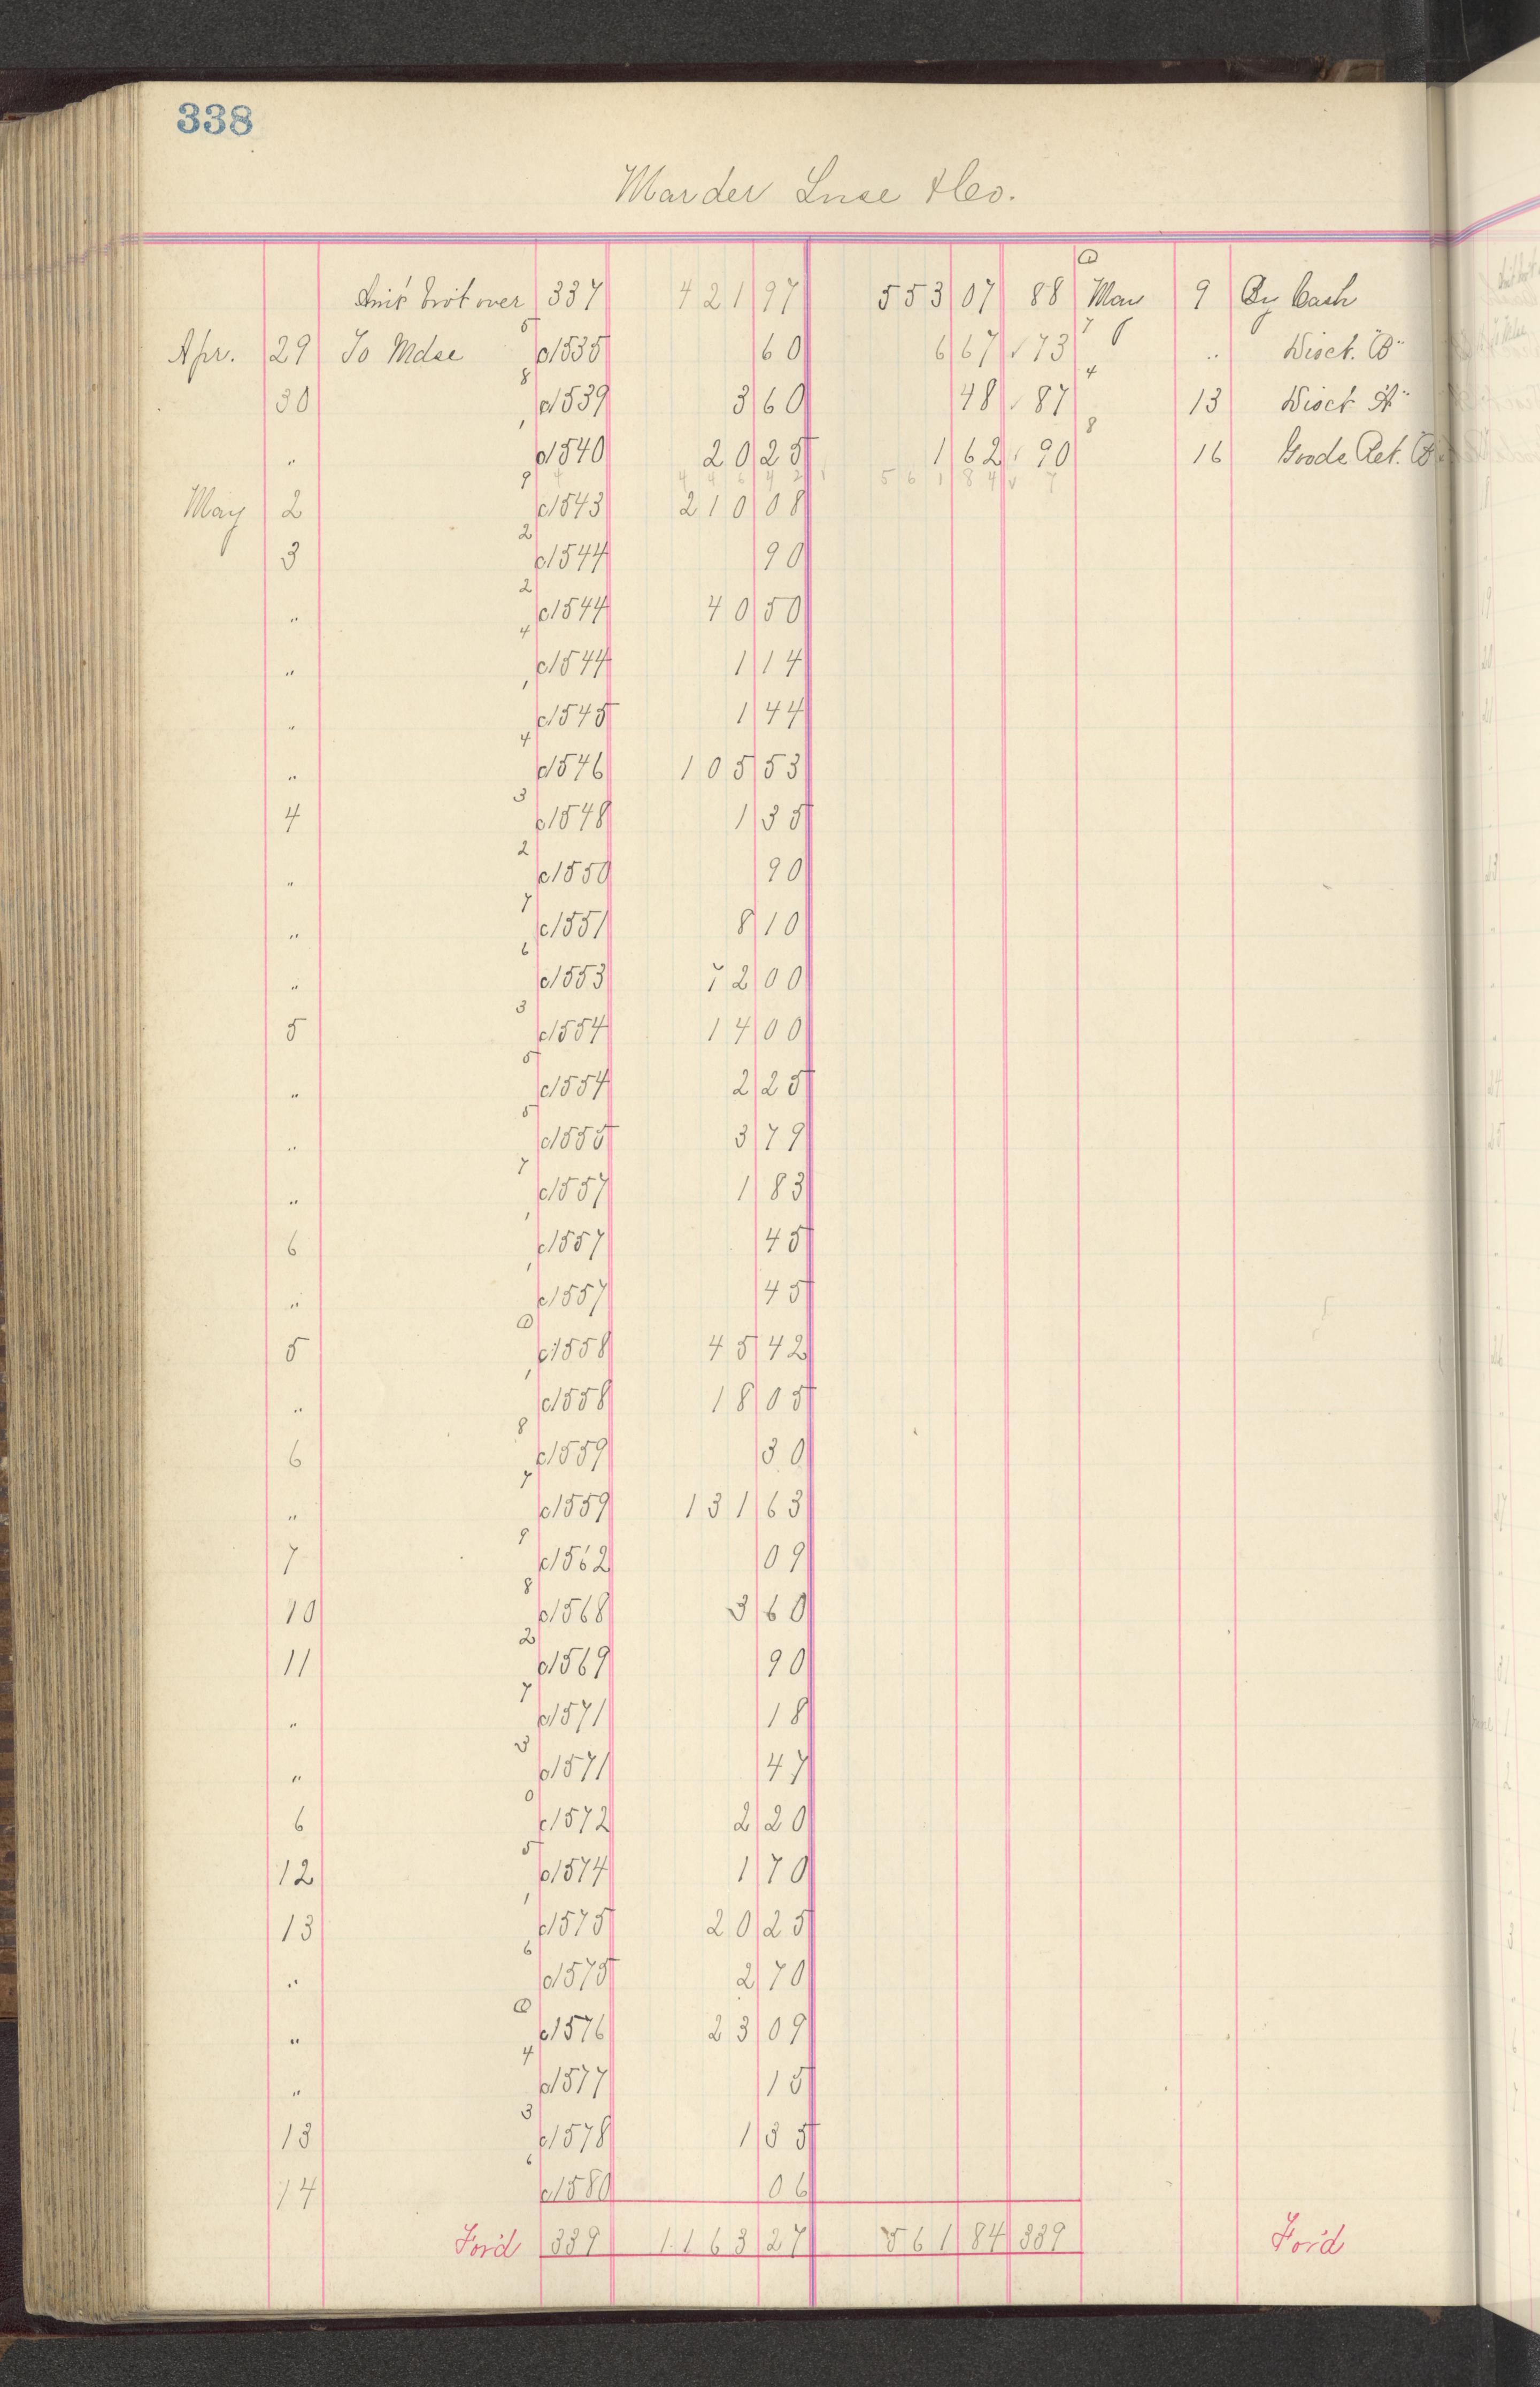 338
Marder Luse & Co.
Amt brot over 337 421 97 553 07 88 Mar 9 By Cash
Apr. 29 To Mdse c1535 60 6 67 ✓ 73 " Disct. "B"
30 c1539 3 60 48 ✓ 87 13 Disct "A"
" c1540 20 25 1 62 ✓ 90 16 Goods Ret. "B"
446 42 561 84
May 2 c1543 210 08
3 c1544 90
" c1544 40 50
" c1544 1 14
" c1545 1 44
" c1546 105 53
4 c1548 1 35
" c1550 90
" c1551 8 10
" c1553 72 00
5 c1554 14 00
" c1554 2 25
" c1555 3 79
" c1557 1 83
6 c1557 45
" c1557 45
5 c1558 45 42
" c1558 18 05
6 c1559 30
" c1559 131 63
7 c1562 09
10 c1568 3 60
11 c1569 90
" c1571 18
" c1571 47
6 c1572 2 20
12 c1574 1 70
13 c1575 20 25
" c1575 2 70
" c1576 23 09
" c1577 15
13 c1578 1 35
14 c1580 06
For'd 339 1163 27 561 84 339 For'd